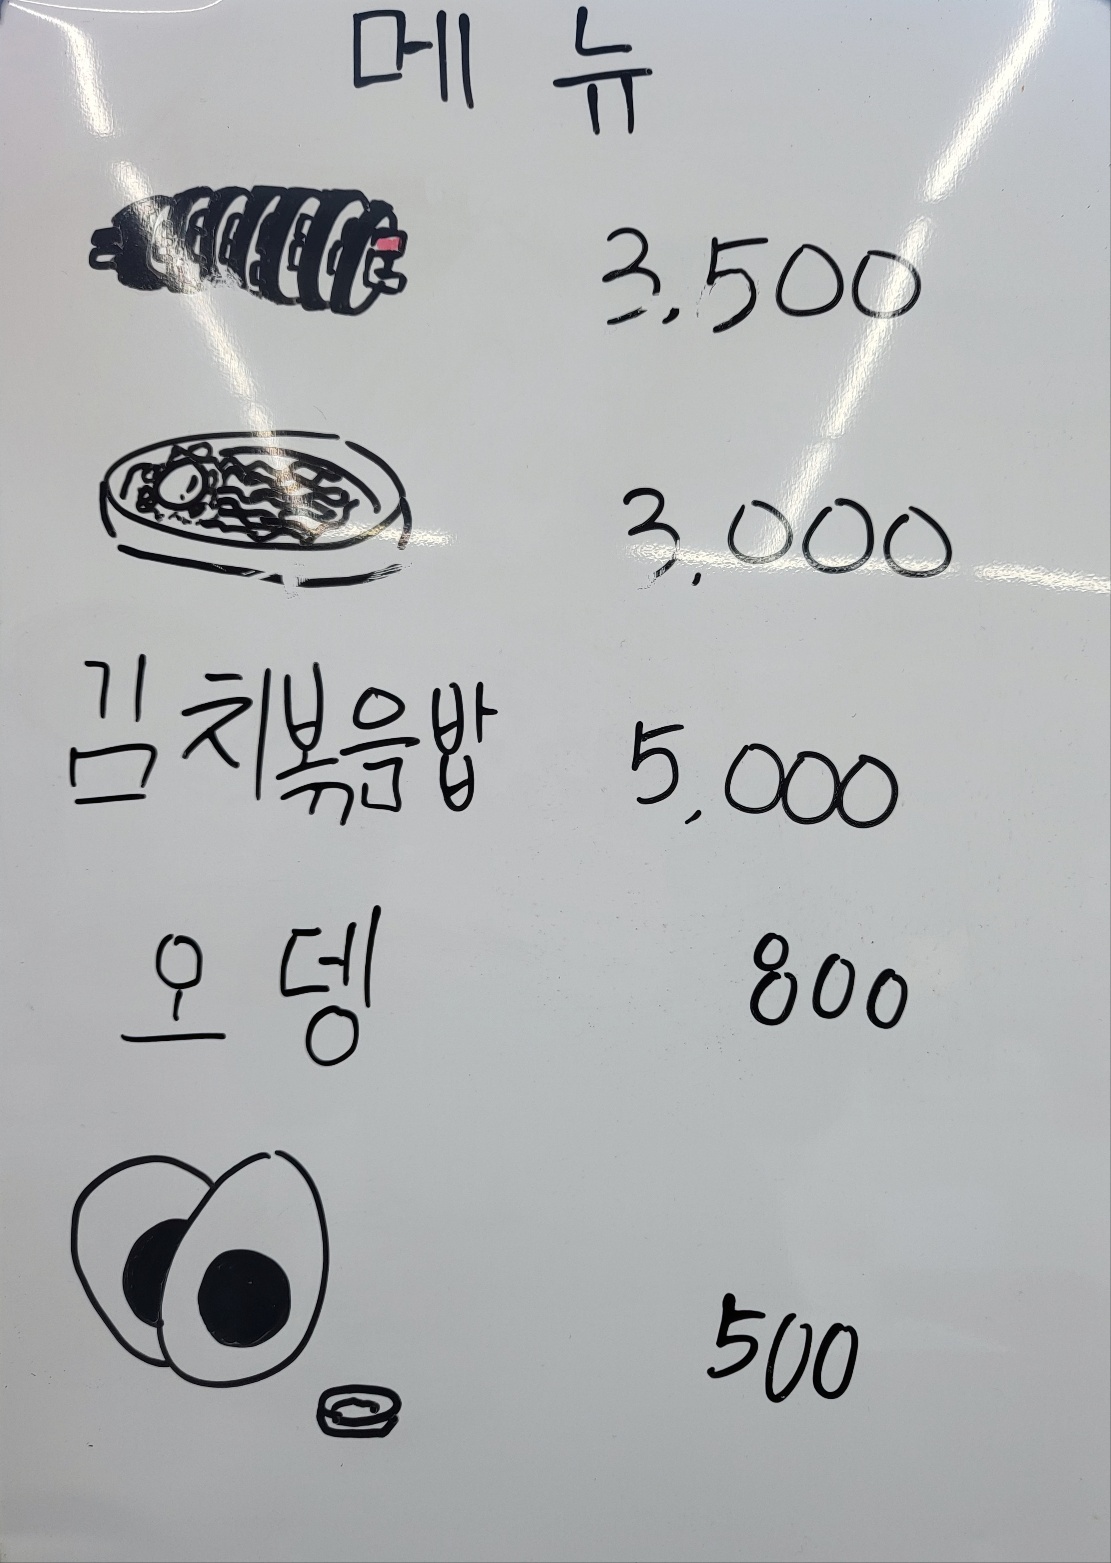 메뉴
3,500
3,000
김치볶음밥 5,000
오뎅 800
500